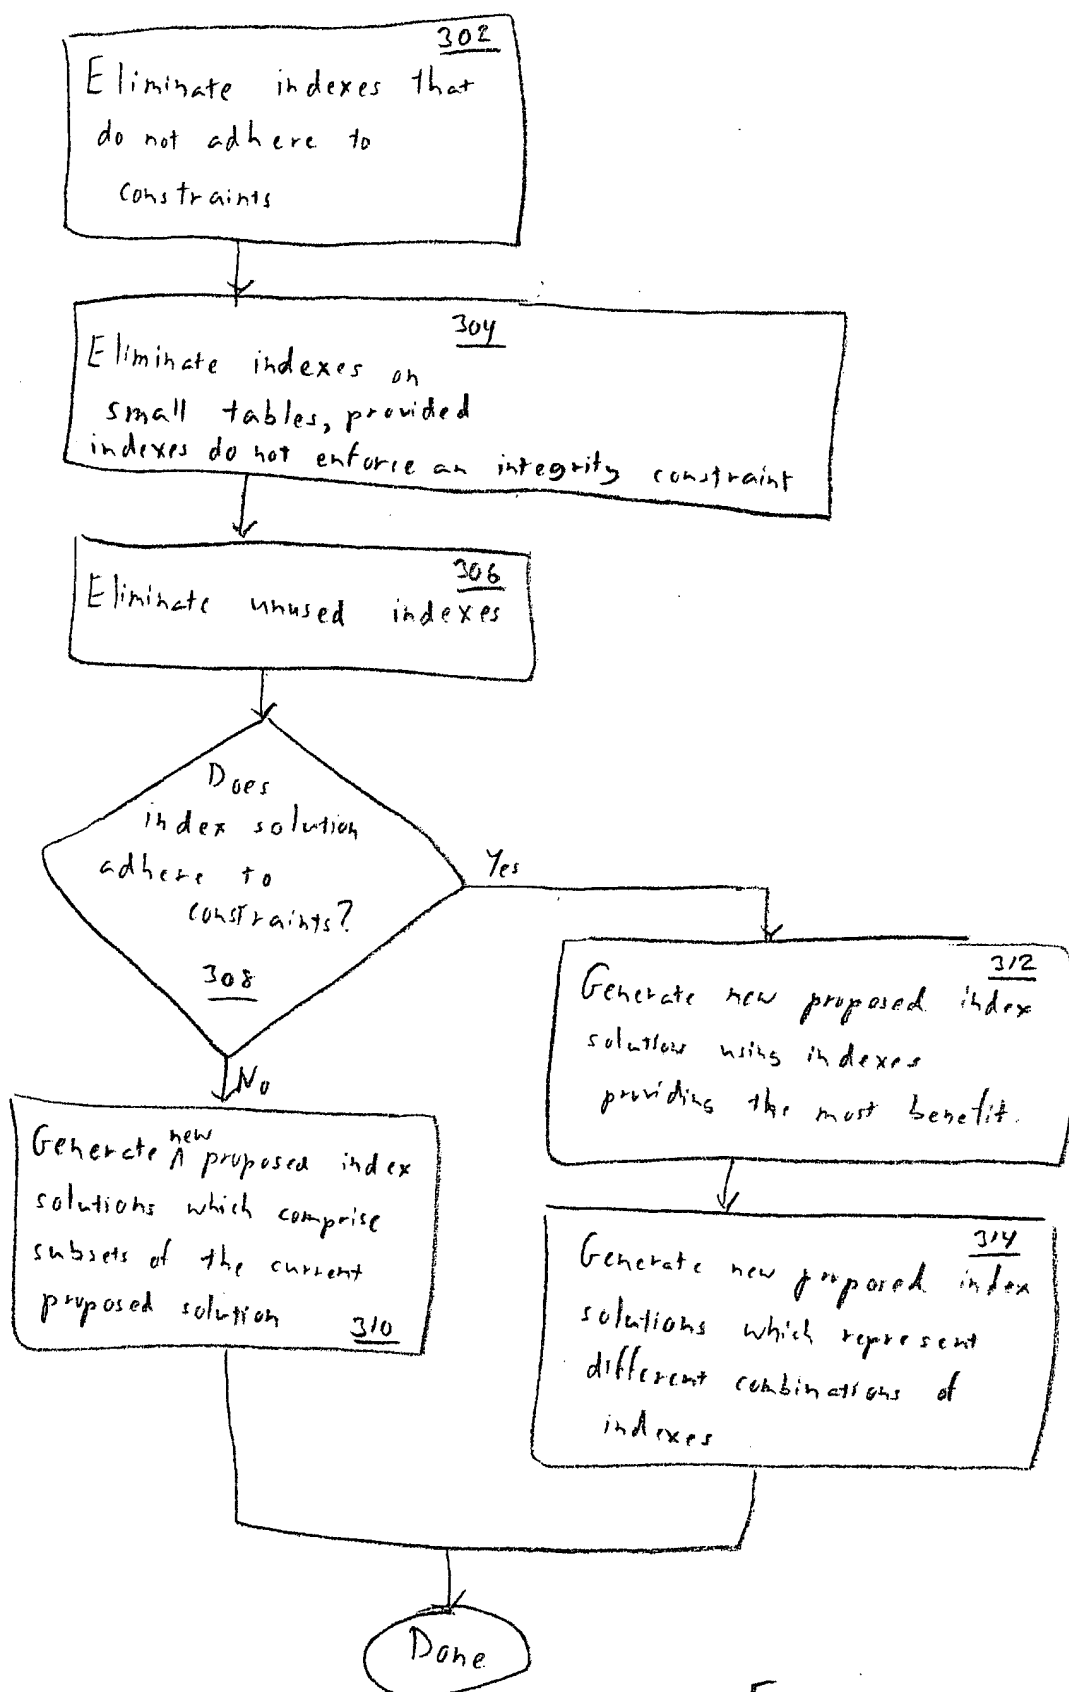 302
Eliminate indexes that
do not adhere to
constraints
304
Eliminate indexes on
small tables, provided
indexes do not enforce an integrity constraint
306
Eliminate unused indexes
Does
index solution
adhere to
constraints?
308
Yes
No
312
Generate new proposed index
solutions using indexes
providing the most benefit.
Generate new proposed index
solutions which comprise
subsets of the current
proposed solution
310
314
Generate new proposed index
solutions which represent
different combinations of
indexes
Done